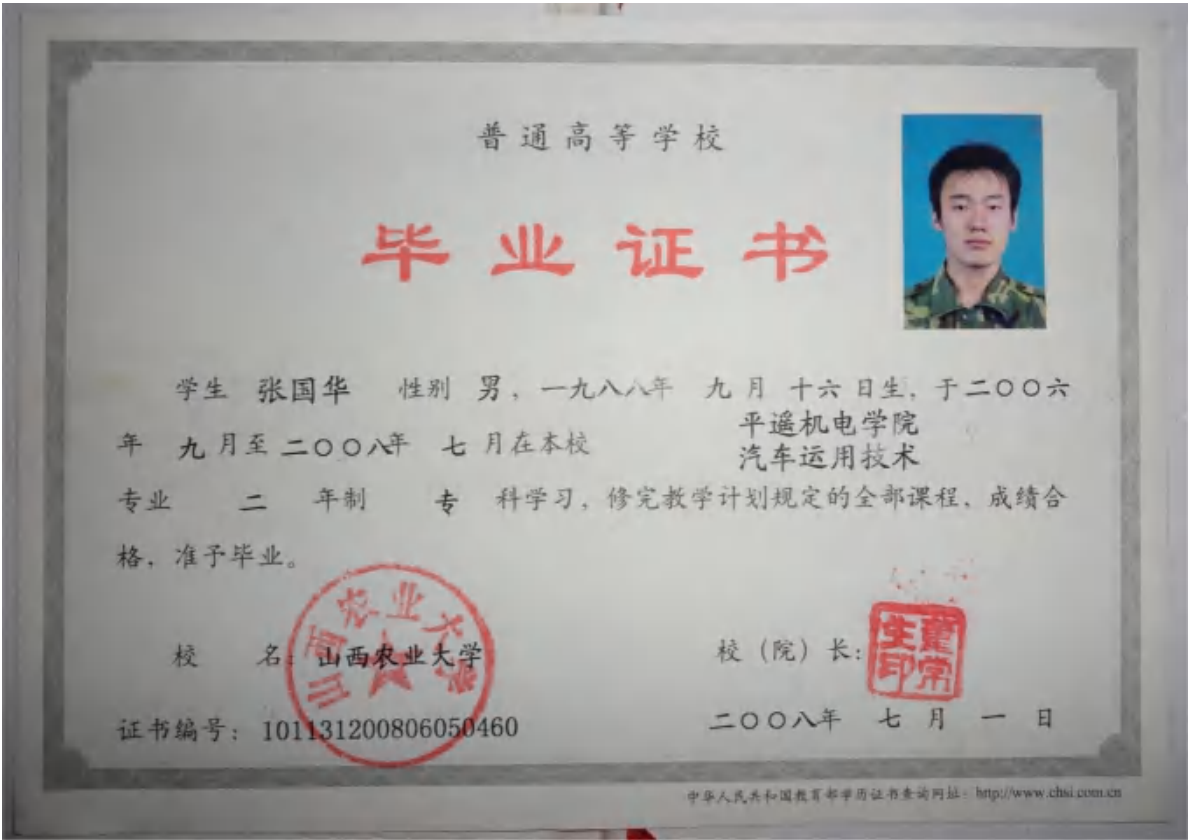 普通高等学校
毕业证书
学生 张国华 性别 男，一九八八年 九月 十六日生，于二〇〇六
平遥机电学院
年 九月至二〇〇八年 七月在本校
汽车运用技术
专业 二 年制 专 科学习，修完教学计划规定的全部课程，成绩合
格，准予毕业。
山西农业大学
校 名：山西农业大学
校（院）长：
董常生印
证书编号：101131200806050460
二〇〇八年 七月 一日
中华人民共和国教育部学历证书查询网址：http://www.chsi.com.cn